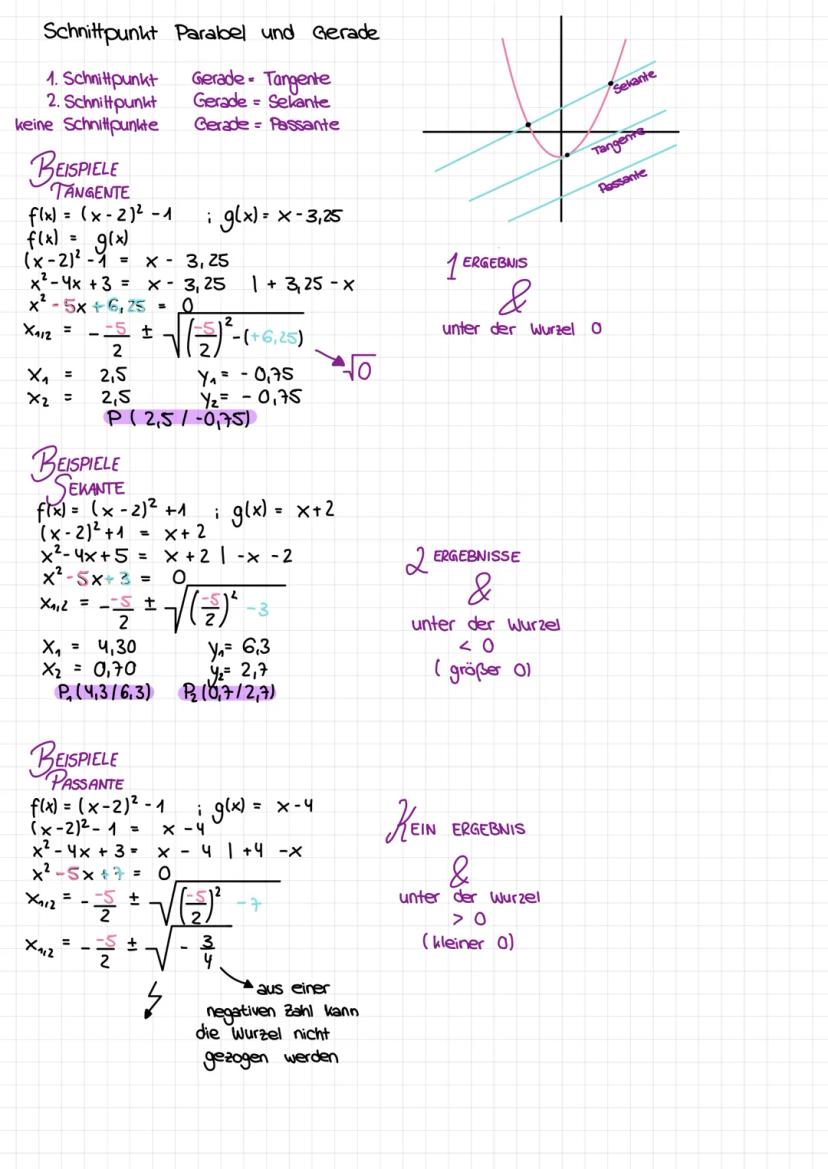 Schnittpunkt Parabel und Gerade
1. Schnittpunkt Gerade = Tangente
2. Schnittpunkt Gerade = Sekante
keine Schnittpunkte Gerade = Passante
Sekante
Tangente
Passante
BEISPIELE
TANGENTE
f(x) = (x-2)² -1 ; g(x) = x-3,25
f(x) = g(x)
(x-2)² -1 = x - 3,25
x²-4x+3 = x - 3,25 | + 3,25 - x
x² -5x +6,25 = 0
x₁/₂ = - -5/2 ± √((-5/2)² -(+6,25))
√0
x₁ = 2,5 y₁ = - 0,75
x₂ = 2,5 y₂ = - 0,75
P ( 2,5 / -0,75)
1 ERGEBNIS
&
unter der Wurzel 0
BEISPIELE
SEKANTE
f(x) = (x-2)² +1 ; g(x) = x+2
(x-2)² +1 = x+2
x²-4x+5 = x+2 | -x -2
x² -5x+3 = 0
x₁/₂ = - -5/2 ± √((-5/2)² -3)
x₁ = 4,30 y₁= 6,3
x₂ = 0,70 y₂= 2,7
P₁(4,3/6,3) P₂(0,7/2,7)
2 ERGEBNISSE
&
unter der Wurzel
< 0
( größer 0)
BEISPIELE
PASSANTE
f(x) = (x-2)² -1 ; g(x) = x-4
(x-2)² - 1 = x -4
x² - 4x + 3 = x - 4 | +4 -x
x² -5x +7 = 0
x₁/₂ = - -5/2 ± √((-5/2)² -7)
x₁/₂ = - -5/2 ± √(- 3/4)
aus einer
negativen Zahl kann
die Wurzel nicht
gezogen werden
KEIN ERGEBNIS
&
unter der Wurzel
> 0
(kleiner 0)